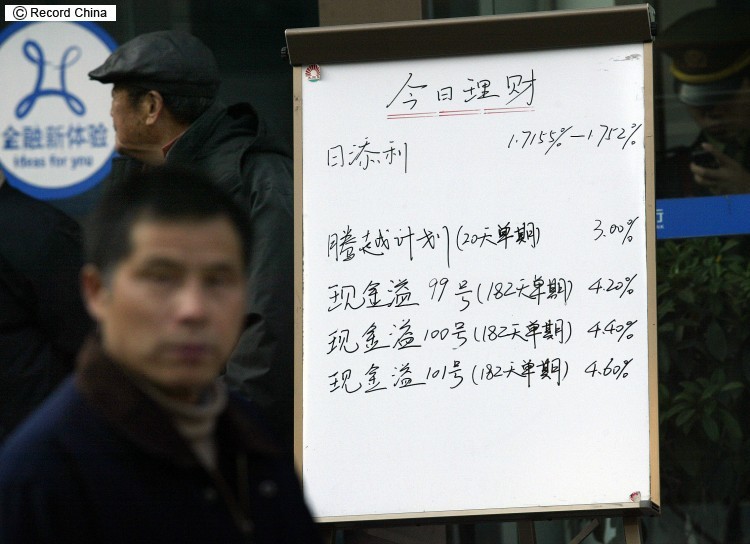 © Record China
金融新体验
Ideas for you
今日理财
日添利 1.7155%-1.752%
腾越计划(20天单期) 3.00%
现金溢99号(182天单期) 4.20%
现金溢100号(182天单期) 4.40%
现金溢101号(182天单期) 4.60%
行